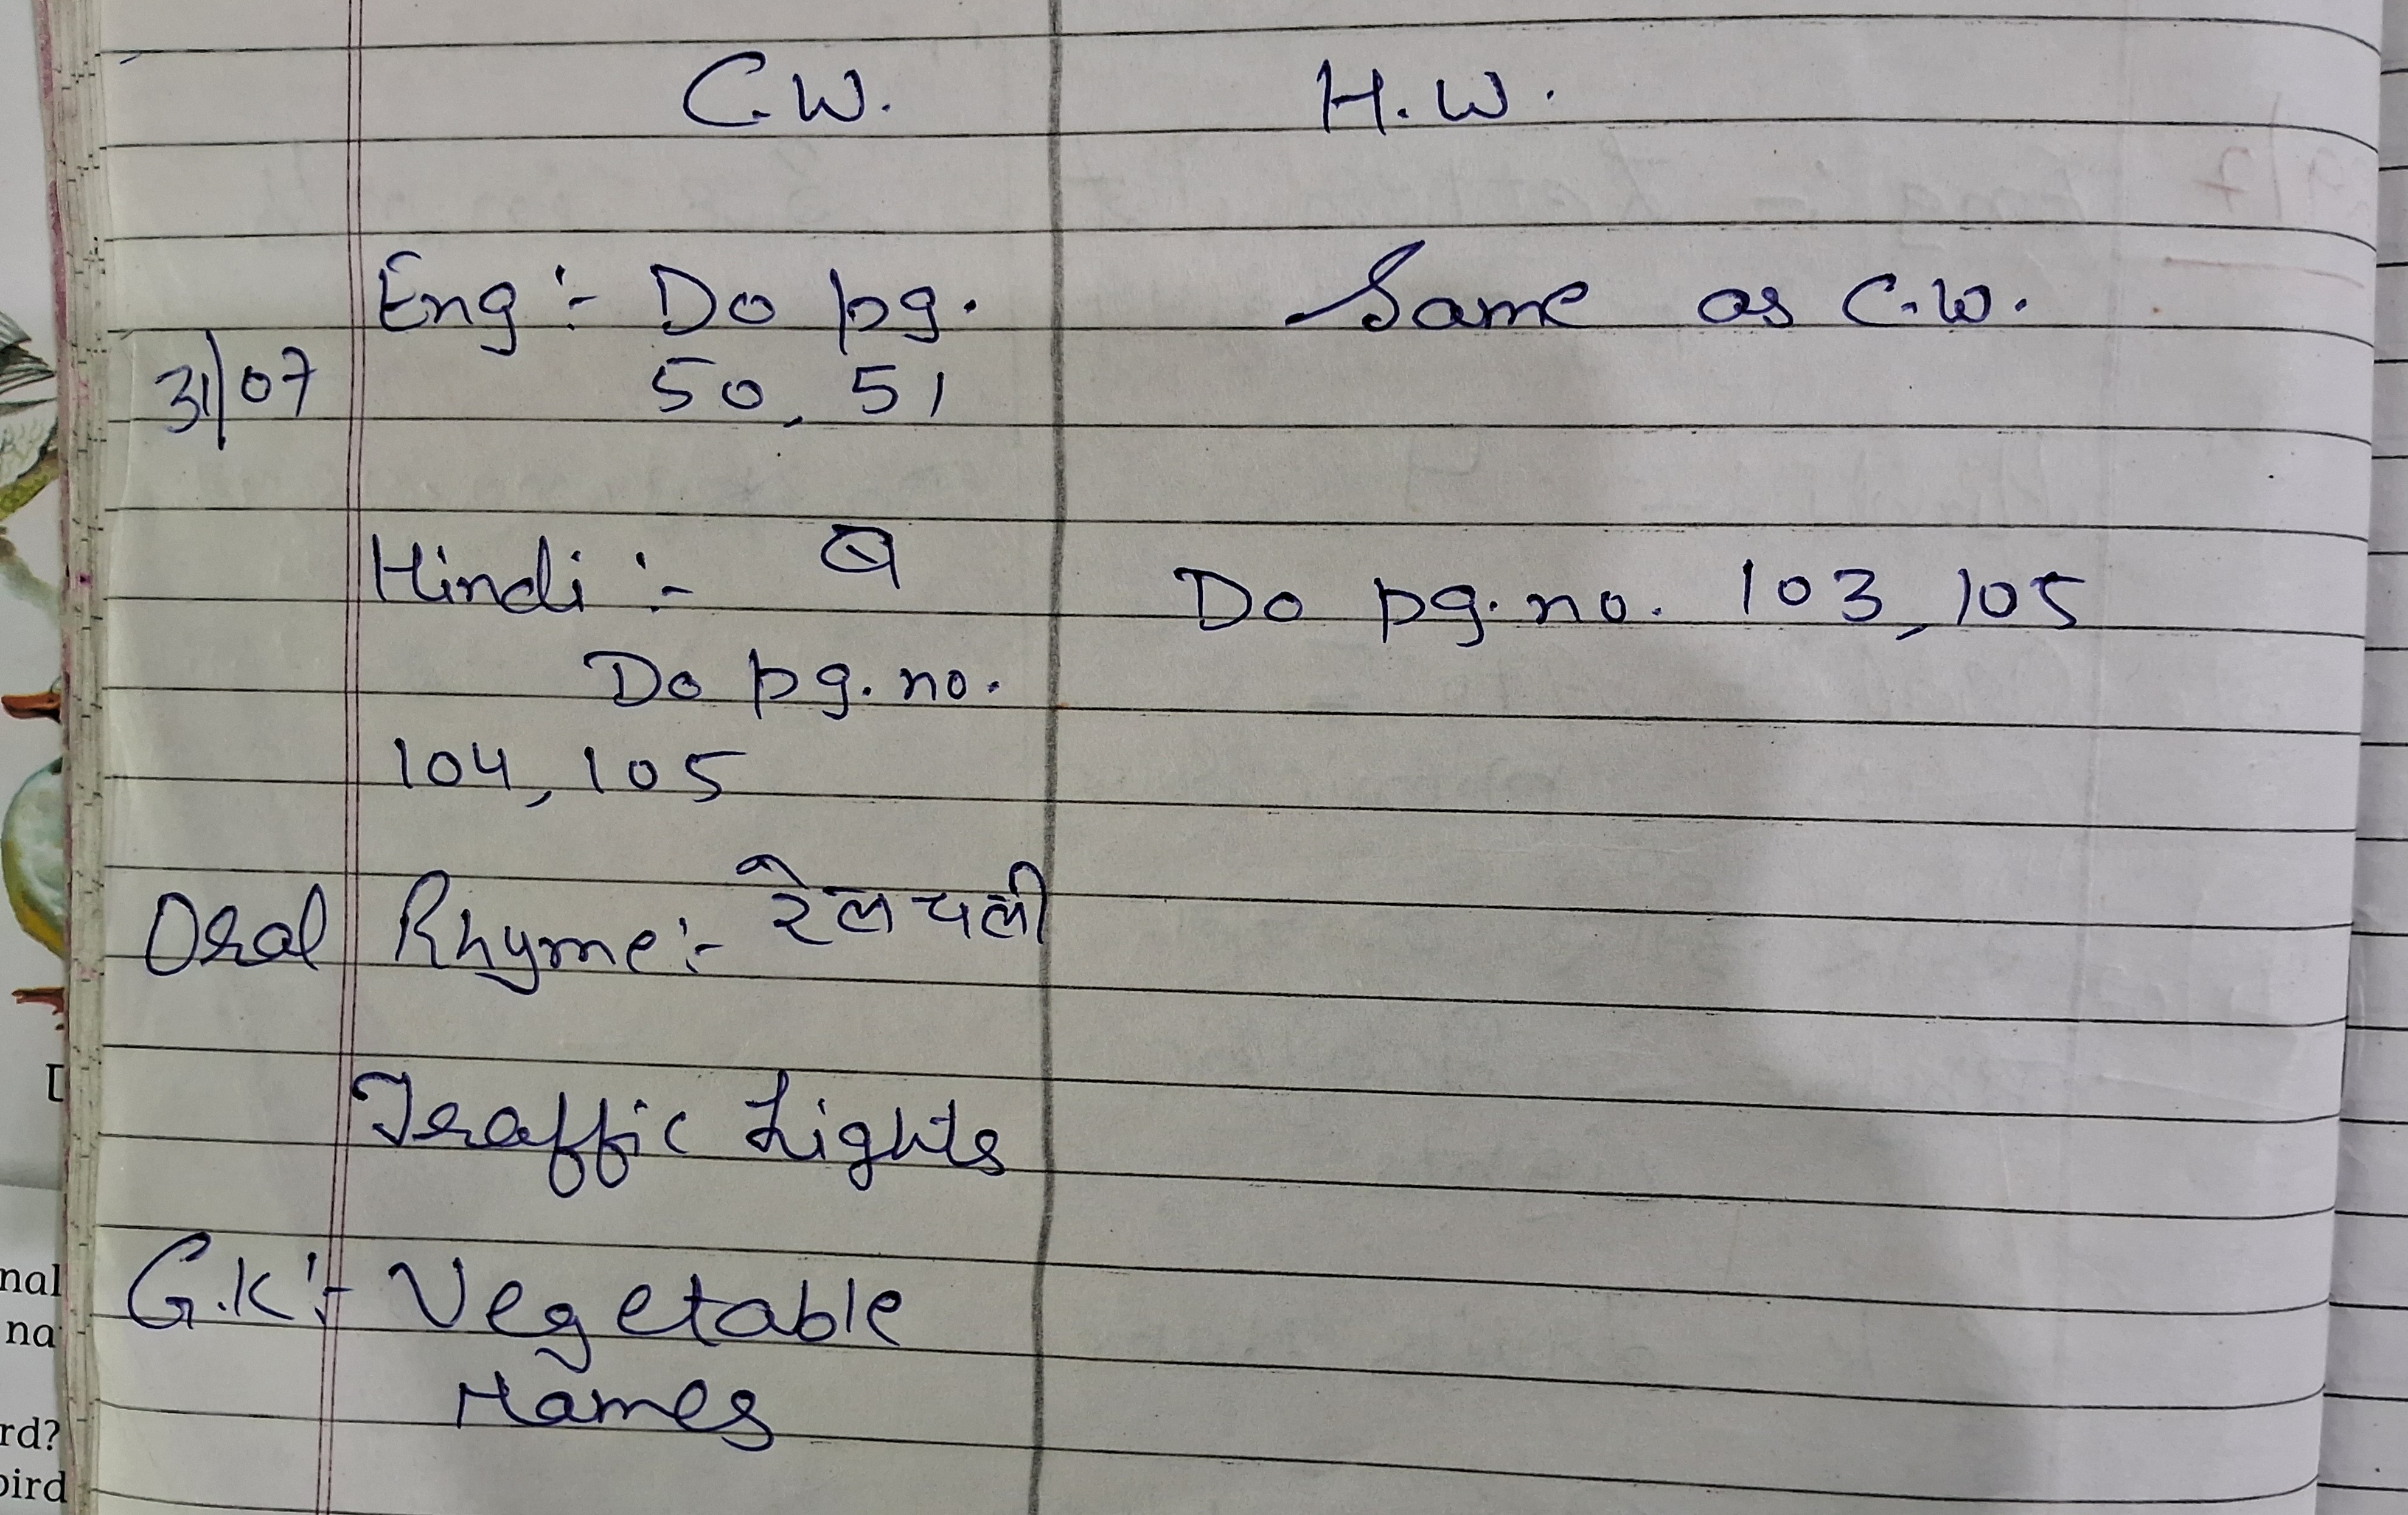 C.W. H.W.
Eng :- Do pg. Same as C.W.
31/07 50, 51
Hindi :- Do pg. no. 103, 105
Do pg. no.
104, 105
Oral Rhyme :- रेल चली
Traffic Lights
G.K :- Vegetable
Names
nal
na
rd?
bird